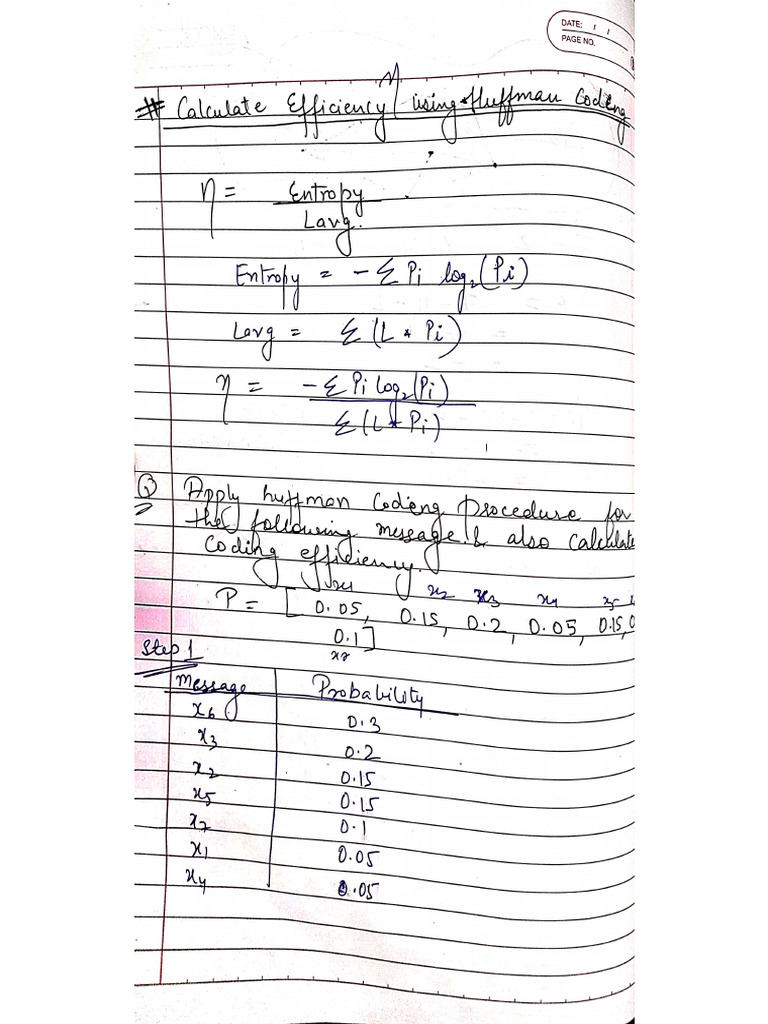 DATE: / /
PAGE NO.
# Calculate Efficiency η using Huffman Codeng
η = Entropy
Lavg.
Entropy = - Σ Pi log₂(Pi)
Lavg = Σ (L * Pi)
η = - Σ Pi log₂(Pi)
Σ (L * Pi)
Q Apply huffman Codeng Procedure for
the following message & also calculate
Coding efficiency
x1 x2 x3 x4 x5
P = [ 0.05, 0.15, 0.2, 0.05, 0.15, 0
0.1]
x7
Step 1
Message Probability
x6 0.3
x3 0.2
x2 0.15
x5 0.15
x7 0.1
x1 0.05
x4 0.05